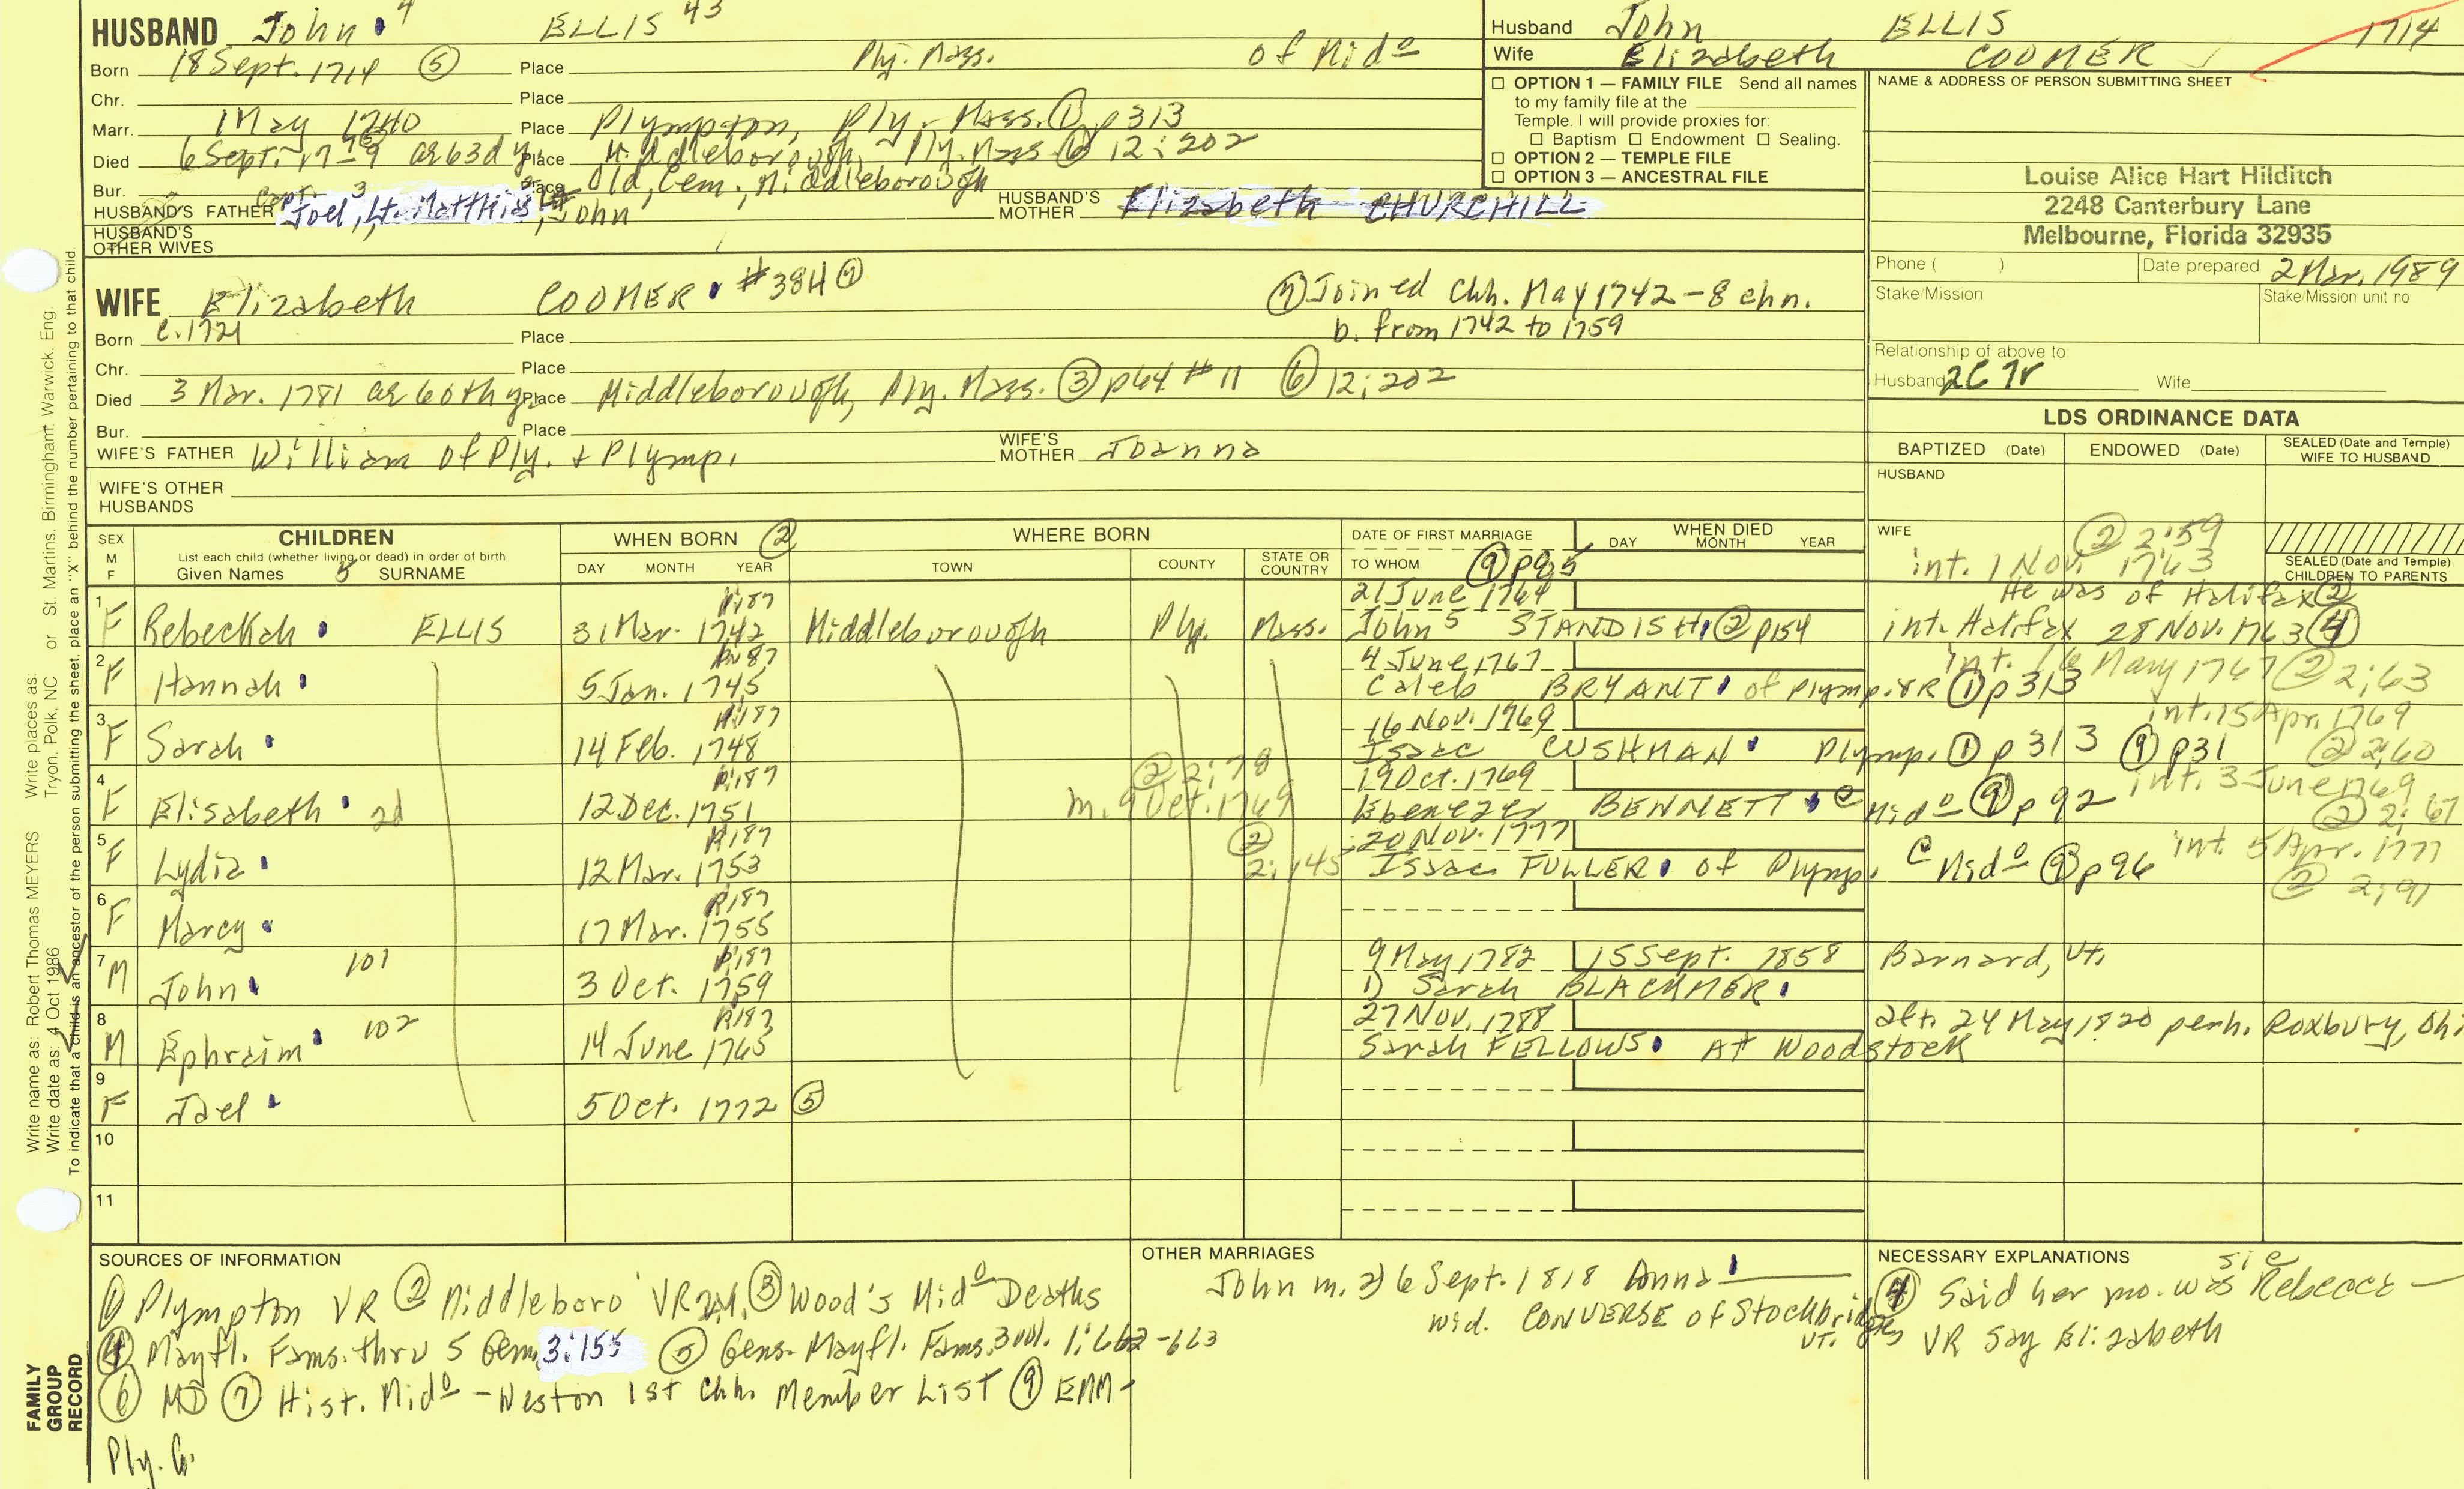 HUSBAND John 4 ELLIS 43
Born 18 Sept. 1714 ⑤ Place Ply. Mass. of Midº
Chr. Place
Marr. 1 May 1740 Place Plympton, Ply. Mass. ① p313
Died 6 Sept. ae 63d y. Place Middleborough, Ply. Mass ⑥ 12:202
Bur. Place Old Cem., Middleborough
HUSBAND'S FATHER Capt. Joel, 3 Lt. Matthias, John HUSBAND'S MOTHER Elizabeth CHURCHILL
HUSBAND'S OTHER WIVES
Husband John ELLIS 1714
Wife Elizabeth COOMER
☐ OPTION 1 — FAMILY FILE Send all names
to my family file at the
Temple. I will provide proxies for:
☐ Baptism ☐ Endowment ☐ Sealing.
☐ OPTION 2 — TEMPLE FILE
☐ OPTION 3 — ANCESTRAL FILE
NAME & ADDRESS OF PERSON SUBMITTING SHEET
Louise Alice Hart Hilditch
2248 Canterbury Lane
Melbourne, Florida 32935
Phone ( ) Date prepared 2 Mar. 1989
Stake/Mission Stake/Mission unit no.
Relationship of above to:
Husband 2C 7r Wife
WIFE Elizabeth COOMER #384 ⑦ ⑦ Joined Chh. May 1742 - 8 chn.
b. from 1742 to 1759
Born c.1721 Place
Chr. Place
Died 3 Mar. 1781 ae 60th y. Place Middleborough, Ply. Mass. ③ p64 #11 ⑥ 12:202
Bur. Place
WIFE'S FATHER William of Ply. + Plymp. WIFE'S MOTHER Joanna
WIFE'S OTHER HUSBANDS
LDS ORDINANCE DATA
BAPTIZED (Date) ENDOWED (Date) SEALED (Date and Temple) WIFE TO HUSBAND
HUSBAND
WIFE
SEALED (Date and Temple) CHILDREN TO PARENTS
SEX M F CHILDREN List each child (whether living or dead) in order of birth Given Names 5 SURNAME
WHEN BORN ② DAY MONTH YEAR
WHERE BORN TOWN COUNTY STATE OR COUNTRY
DATE OF FIRST MARRIAGE TO WHOM ⑨ p95
WHEN DIED DAY MONTH YEAR
② 2:59
int. 1 Nov. 1763
He was of Halifax ②
1 F Rebeckah ELLIS 31 Mar. 1742 Middleborough Ply. Mass. 21 June 1764
John 5 STANDISH ② p154 int. Halifax 28 Nov. 1763 ④
2 F Hannah 5 Jan. 1745 4 June 1767
Caleb BRYANT of Plymp. ① p313 ② 2:63
3 F Sarah 14 Feb. 1748 16 Nov. 1769 int. 15 Apr. 1769
Isaac CUSHMAN Plymp. ① p313 ⑨ p31 ② 2:60
4 F Elisabeth 2d 12 Dec. 1751 ② 2:78 m. 9 Oct. 1769 19 Oct. 1769
Ebenezer BENNETT Midº ⑨ p92 int. 3 June 1769 ② 2:67
5 F Lydia 12 Mar. 1753 ② 2:145 20 Nov. 1777
Isaac FULLER of Plymp. Midº ⑨ p96 int. 5 Apr. 1777 ② 2:91
6 F Marcy 17 Mar. 1755
7 M John 101 3 Oct. 1759 9 May 1782 15 Sept. 1858 Barnard, Vt.
1) Sarah BLACKMER
8 M Ephraim 102 14 June 1765 27 Nov. 1788 aft. 24 May 1820 perh. Roxbury, Oh.
Sarah FELLOWS At Woodstock
9 F Jael 5 Oct. 1772 ⑤
10
11
SOURCES OF INFORMATION
① Plympton VR ② Middleboro VR ③ Wood's Midº Deaths
④ Mayfl. Fams. thru 5 Gen. 3:155 ⑤ Gens. Mayfl. Fams. 3 vol. 1:662-663
⑥ MD ⑦ Hist. Midº - Weston 1st Chh. Member List ⑨ EMM-
Ply. Co.
OTHER MARRIAGES
John m. 2) 6 Sept. 1818 Anna
wid. CONVERSE of Stockbridge
VT.
NECESSARY EXPLANATIONS
sic
④ Said her mo. was Rebecca
VR say Elizabeth
Write name as: Robert Thomas MEYERS Write places as Tryon, Polk, NC or St. Martins, Birmingham, Warwick, Eng.
Write date as: 4 Oct 1986
To indicate that a child is an ancestor of the person submitting the sheet, place an "X" behind the number pertaining to that child.
FAMILY
GROUP
RECORD